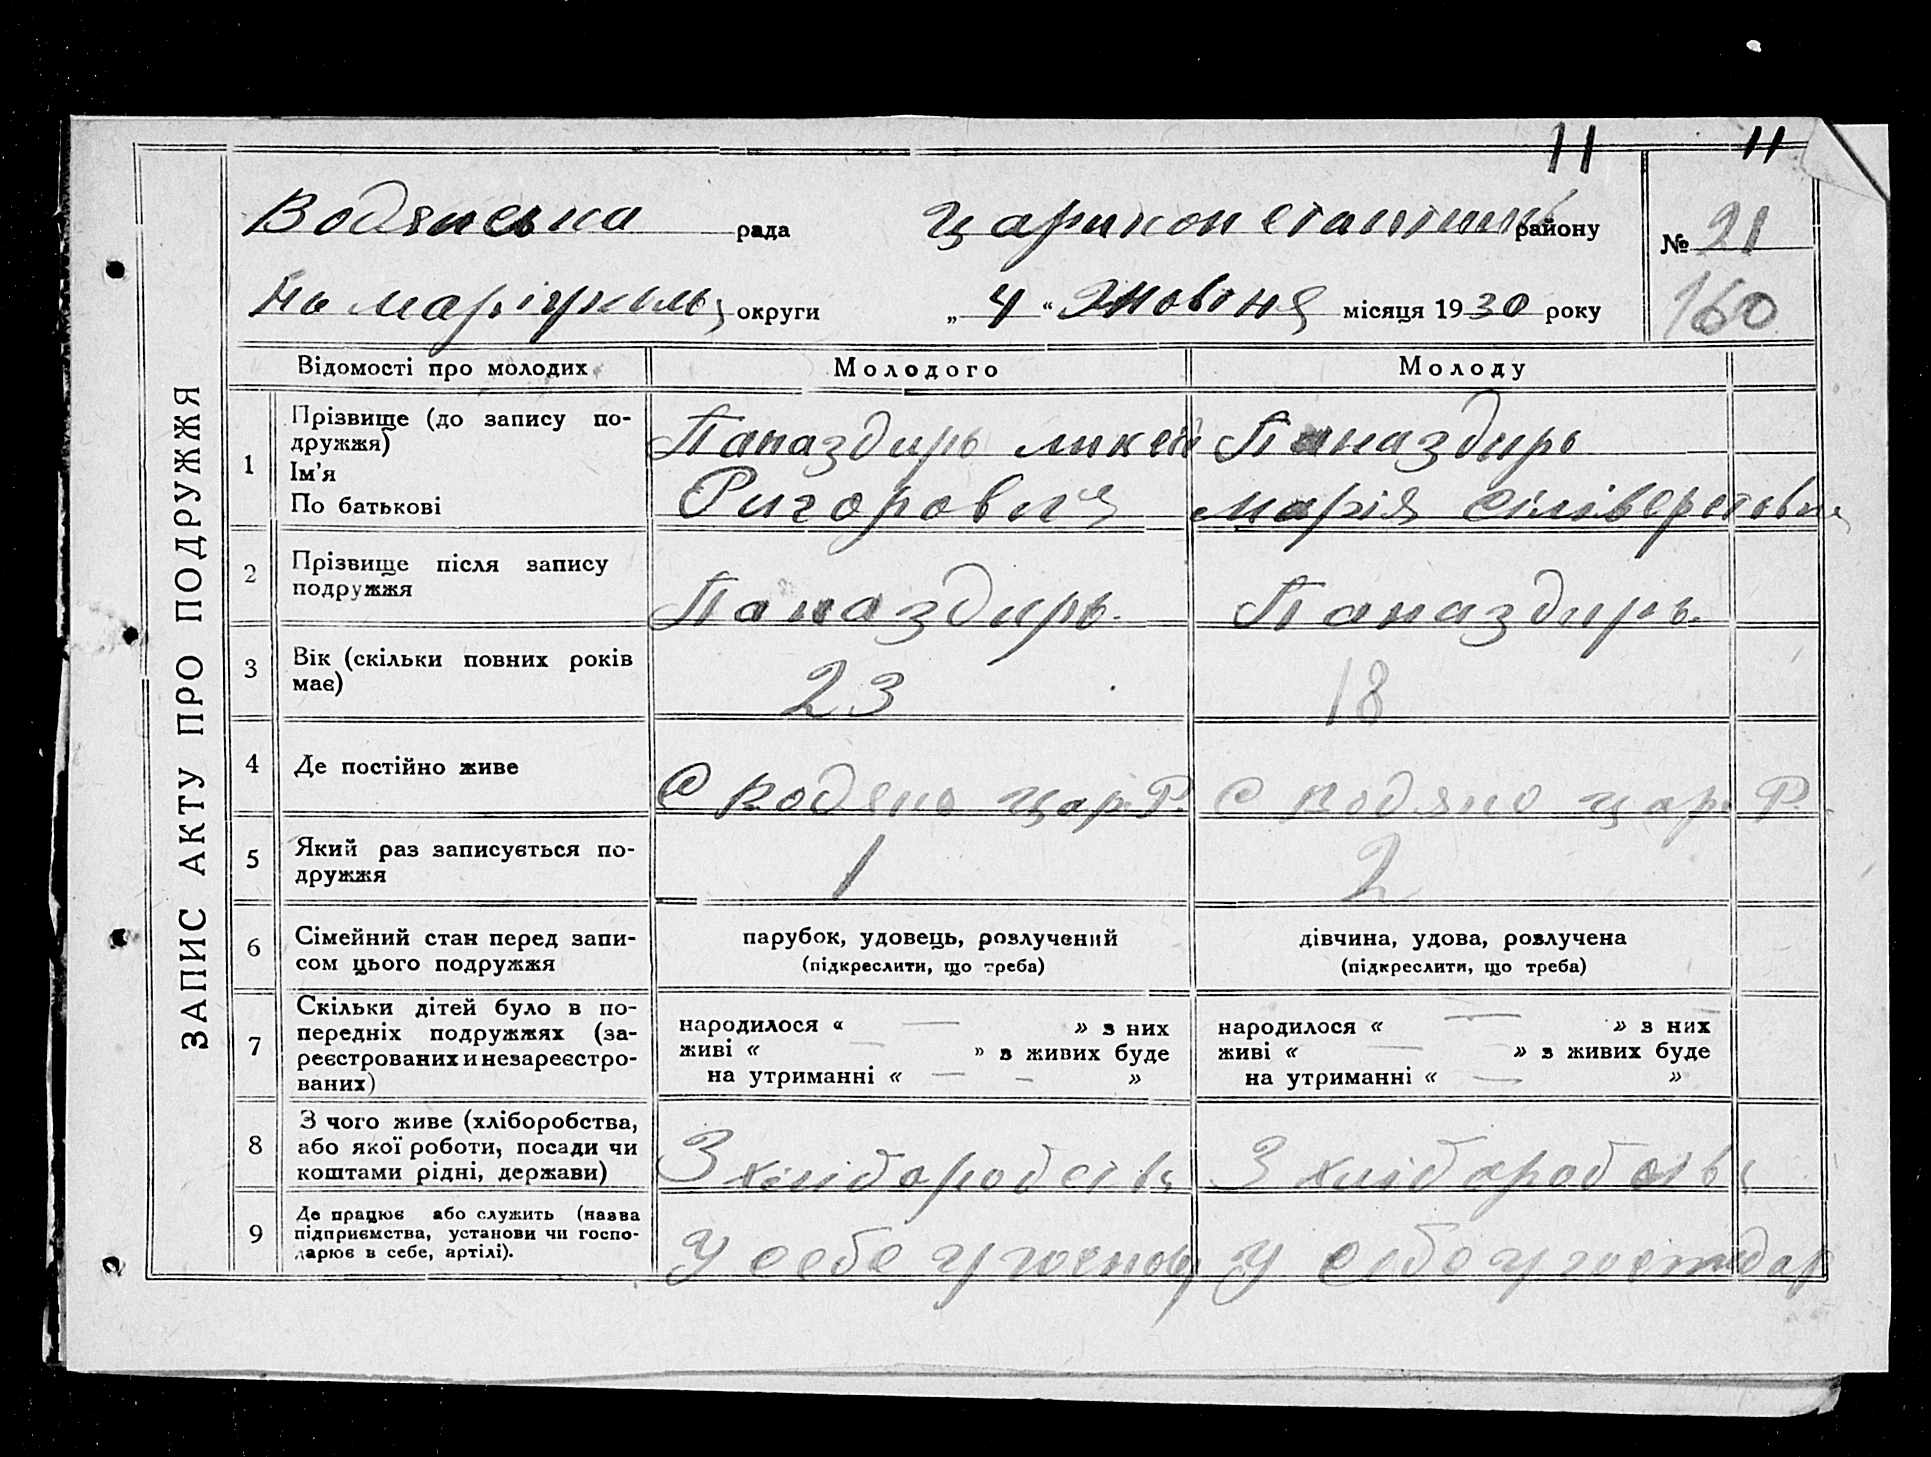 11 11
Водянська рада Царикон стантин району № 21
На маріупиль округи „ 4 “ Жовтня місяця 1930 року 160
ЗАПИС АКТУ ПРО ПОДРУЖЖЯ
Відомості про молодих Молодого Молоду
1 Прізвище (до запису по-
дружжя)
Ім'я
По батькові
Папаздирь микей
Ригорович
Папаздирь
марія
2 Прізвище після запису
подружжя
Папаздирь. Папаздирь.
3 Вік (скільки повних років
має)
23 18
4 Де постійно живе С Водяно цар. Р. С Водяно цар. Р.
5 Який раз записується по-
дружжя
1 2
6 Сімейний стан перед запи-
сом цього подружжя
парубок, удовець, розлучений
(підкреслити, що треба)
дівчина, удова, розлучена
(підкреслити, що треба)
7 Скільки дітей було в по-
передніх подружжях (за-
реєстрованих и незареєстро-
ваних)
народилося « — » з них
живі « — » з живих буде
на утриманні « — — »
народилося « — » з них
живі « — » з живих буде
на утриманні « — »
8 З чого живе (хліборобства,
або якої роботи, посади чи
коштами рідні, держави)
З хлібаробств З хлібаробств
9 Де працює або служить (назва
підприємства, установи чи госпо-
дарює в себе, артілі).
У себе у господ У себе у господар